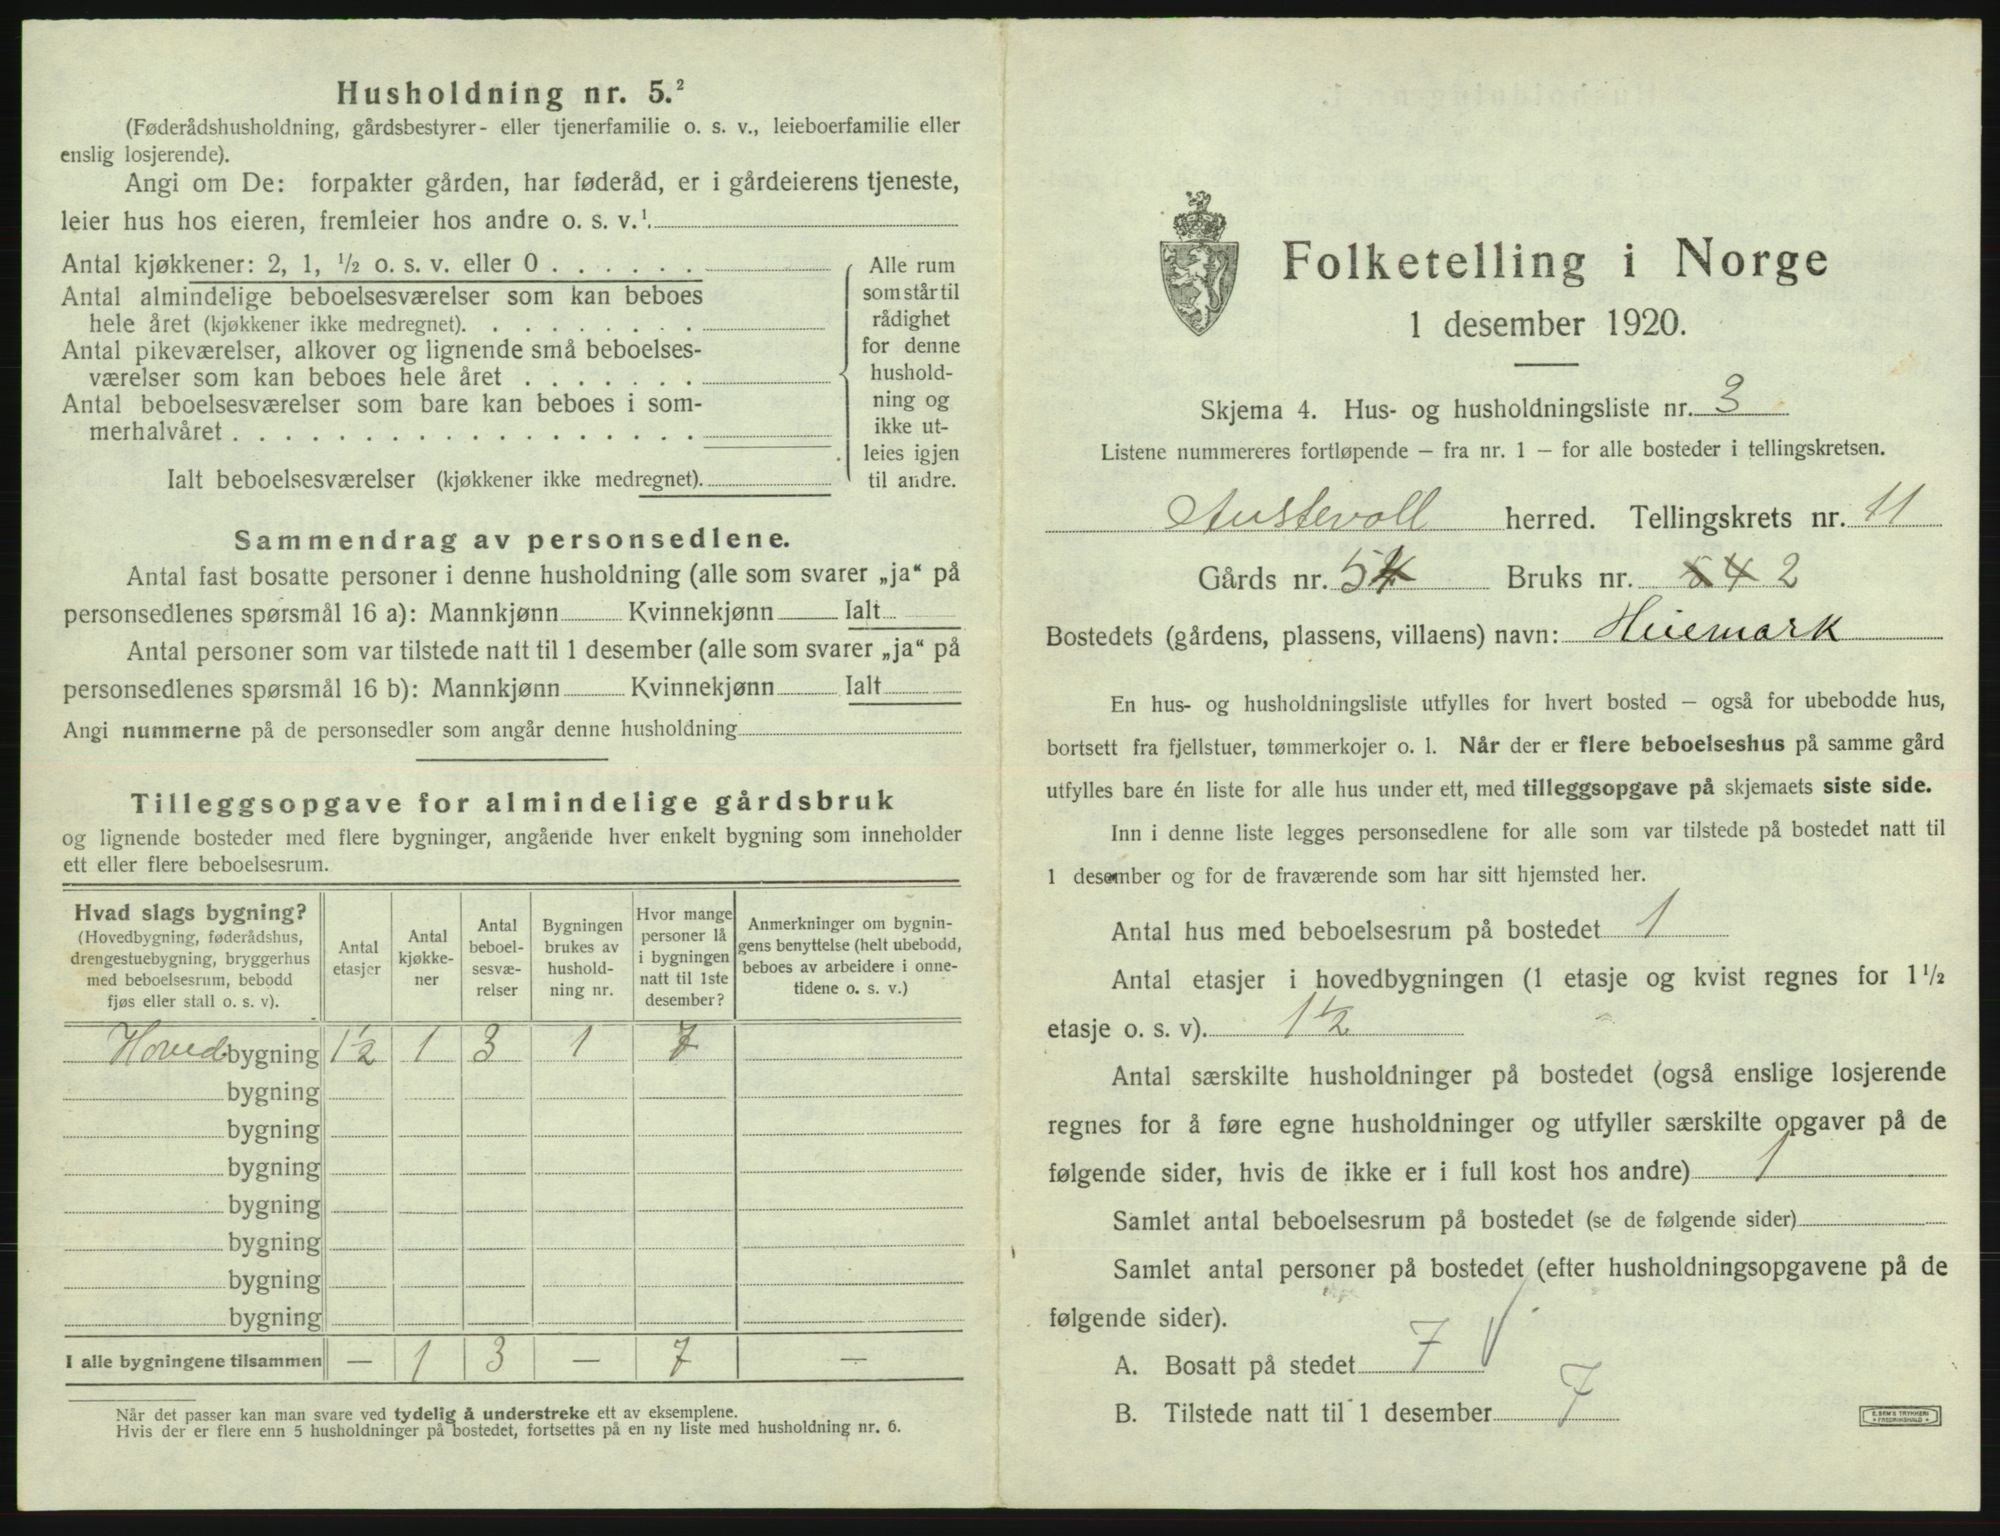 Husholdning nr. 5.²
(Føderådshusholdning, gårdsbestyrer- eller tjenerfamilie o. s. v., leieboerfamilie eller
enslig losjerende).
Angi om De: forpakter gården, har føderåd, er i gårdeierens tjeneste,
leier hus hos eieren, fremleier hos andre o. s. v.¹.
Antal kjøkkener: 2, 1, ½ o. s. v. eller 0
Antal almindelige beboelsesværelser som kan beboes
hele året (kjøkkener ikke medregnet).
Antal pikeværelser, alkover og lignende små beboelses-
værelser som kan beboes hele året
Antal beboelsesværelser som bare kan beboes i som-
merhalvåret
Ialt beboelsesværelser (kjøkkener ikke medregnet).
Alle rum
som står til
rådighet
for denne
hushold-
ning og
ikke ut-
leies igjen
til andre.
Sammendrag av personsedlene.
Antal fast bosatte personer i denne husholdning (alle som svarer „ja“ på
personsedlenes spørsmål 16 a): Mannkjønn Kvinnekjønn Ialt
Antal personer som var tilstede natt til 1 desember (alle som svarer „ja“ på
personsedlenes spørsmål 16 b): Mannkjønn Kvinnekjønn Ialt
Angi nummerne på de personsedler som angår denne husholdning
Tilleggsopgave for almindelige gårdsbruk
og lignende bosteder med flere bygninger, angående hver enkelt bygning som inneholder
ett eller flere beboelsesrum.
Hvad slags bygning?
(Hovedbygning, føderådshus,
drengestuebygning, bryggerhus
med beboelsesrum, bebodd
fjøs eller stall o. s. v).
Antal
etasjer
Antal
kjøkke-
ner
Antal
beboel-
sesvæ-
relser
Bygningen
brukes av
hushold-
ning nr.
Hvor mange
personer lå
i bygningen
natt til 1ste
desember?
Anmerkninger om bygnin-
gens benyttelse (helt ubebodd,
beboes av arbeidere i onne-
tidene o. s. v.)
Hovedbygning 1½ 1 3 1 7
bygning
bygning
bygning
bygning
bygning
bygning
bygning
I alle bygningene tilsammen — 1 3 — 7 —
Når det passer kan man svare ved tydelig å understreke ett av eksemplene.
Hvis der er flere enn 5 husholdninger på bostedet, fortsettes på en ny liste med husholdning nr. 6.
Folketelling i Norge
1 desember 1920.
Skjema 4. Hus- og husholdningsliste nr. 3
Listene nummereres fortløpende — fra nr. 1 — for alle bosteder i tellingskretsen.
Austevoll herred. Tellingskrets nr. 11
Gårds nr. 54 Bruks nr. 2
Bostedets (gårdens, plassens, villaens) navn: Heiemark
En hus- og husholdningsliste utfylles for hvert bosted — også for ubebodde hus,
bortsett fra fjellstuer, tømmerkojer o. l. Når der er flere beboelseshus på samme gård
utfylles bare én liste for alle hus under ett, med tilleggsopgave på skjemaets siste side.
Inn i denne liste legges personsedlene for alle som var tilstede på bostedet natt til
1 desember og for de fraværende som har sitt hjemsted her.
Antal hus med beboelsesrum på bostedet 1
Antal etasjer i hovedbygningen (1 etasje og kvist regnes for 1½
etasje o. s. v). 1½
Antal særskilte husholdninger på bostedet (også enslige losjerende
regnes for å føre egne husholdninger og utfyller særskilte opgaver på de
følgende sider, hvis de ikke er i full kost hos andre) 1
Samlet antal beboelsesrum på bostedet (se de følgende sider)
Samlet antal personer på bostedet (efter husholdningsopgavene på de
følgende sider).
A. Bosatt på stedet 7
B. Tilstede natt til 1 desember 7
E. SEM'S TRYKKERI
FREDRIKSHALD